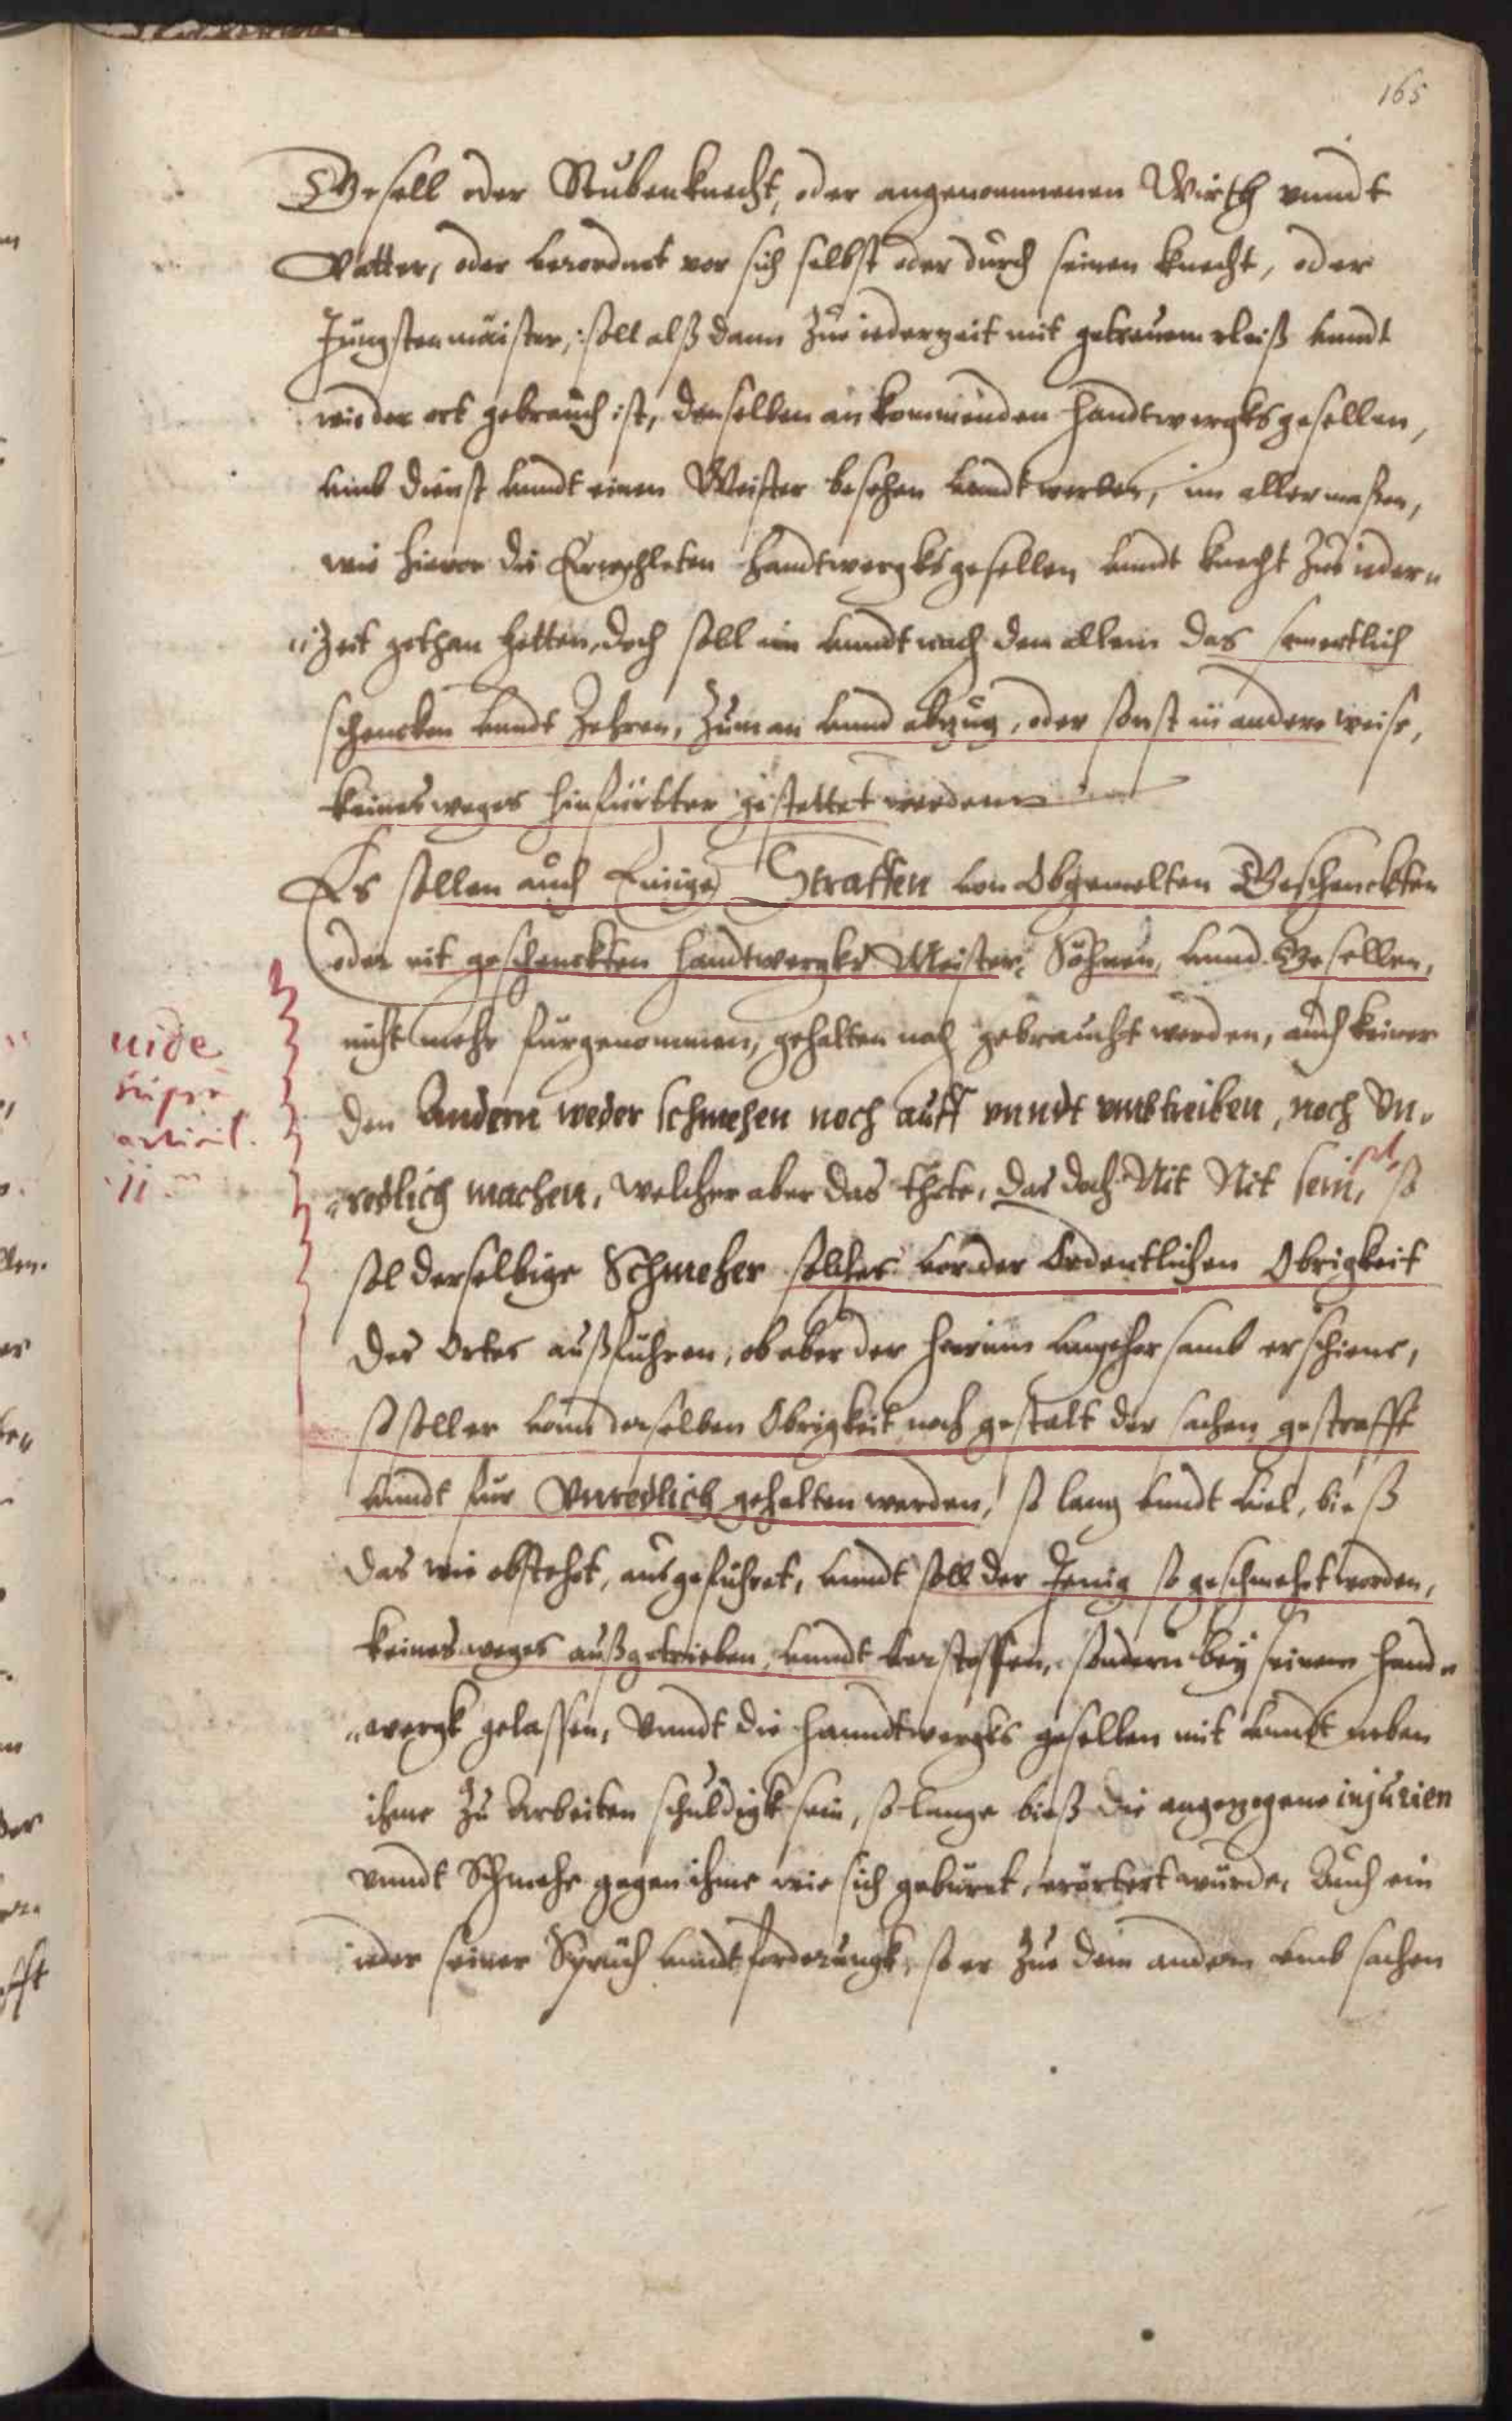 165
Gesell oder Stubenknecht, oder angenommenen Wirth vnndt
Vatter, oder verordnet vor sich selbst oder durch seinen knecht, oder
Jungstenmaister, soll alß dann zue iederzeit mit getreuem vleiß vnndt
wie der ort gebrauch ist, denselben ankommenden handtwergksgesellen,
vmb dienst vnndt einen Meister besehen vnndt werben, im aller maßen,
wie hievor die Erwehleten handtwergksgesellen vnndt knecht zue ieder„
„zeit gethan hetten, doch soll im vnndt nach dem allem das
schencken vnndt Zehren, zum an vnnd abzug, oder sonst in andere weise,
keinesweges hinfürtter gestattet werden
Es sollen auch Einige Straffen von Obgemelten Geschenckten
oder nit geschenckten handtwergks Meister, Söhnen, vnnd Gesellen,
nicht mehr fürgenommen, gehalten noch gebraucht werden, auch keiner
den Andern weder schmehen noch auff vnndt vmbtreiben, noch Vn„
„redlich machen, welcher aber das thete, das doch Nit Nit sein, so
sol derselbige Schmeher solches vor der Ordentlichen Obrigkeit
des Ortes außführen, ob aber der hierinn vngehorsamb erschiene,
so soll er vonn derselben Obrigkeit nach gestalt der sachen gestrafft
vnndt fur Vnredlich gehalten werden, so lang vnndt viel, bieß
das wie obstehet, ausgeführet, vnndt soll der Jenig so geschmehet worden,
keinesweges außgetrieben, vnndt verstossen, sondern bey seinem hand„
„wergk gelassen, Vnndt die hanndtwergks gesellen mit vnndt neben
ihme zu Arbeiten schuldigk sein, so lange bieß die angezogene injurien
vnndt Schmehe gegen ihme wie sich geburet, erörtert wurde, Auch ein
ieder seiner Spruch vnndt forderungk, so er zue dem andern vmb sachen
uide
supra
articul.
11